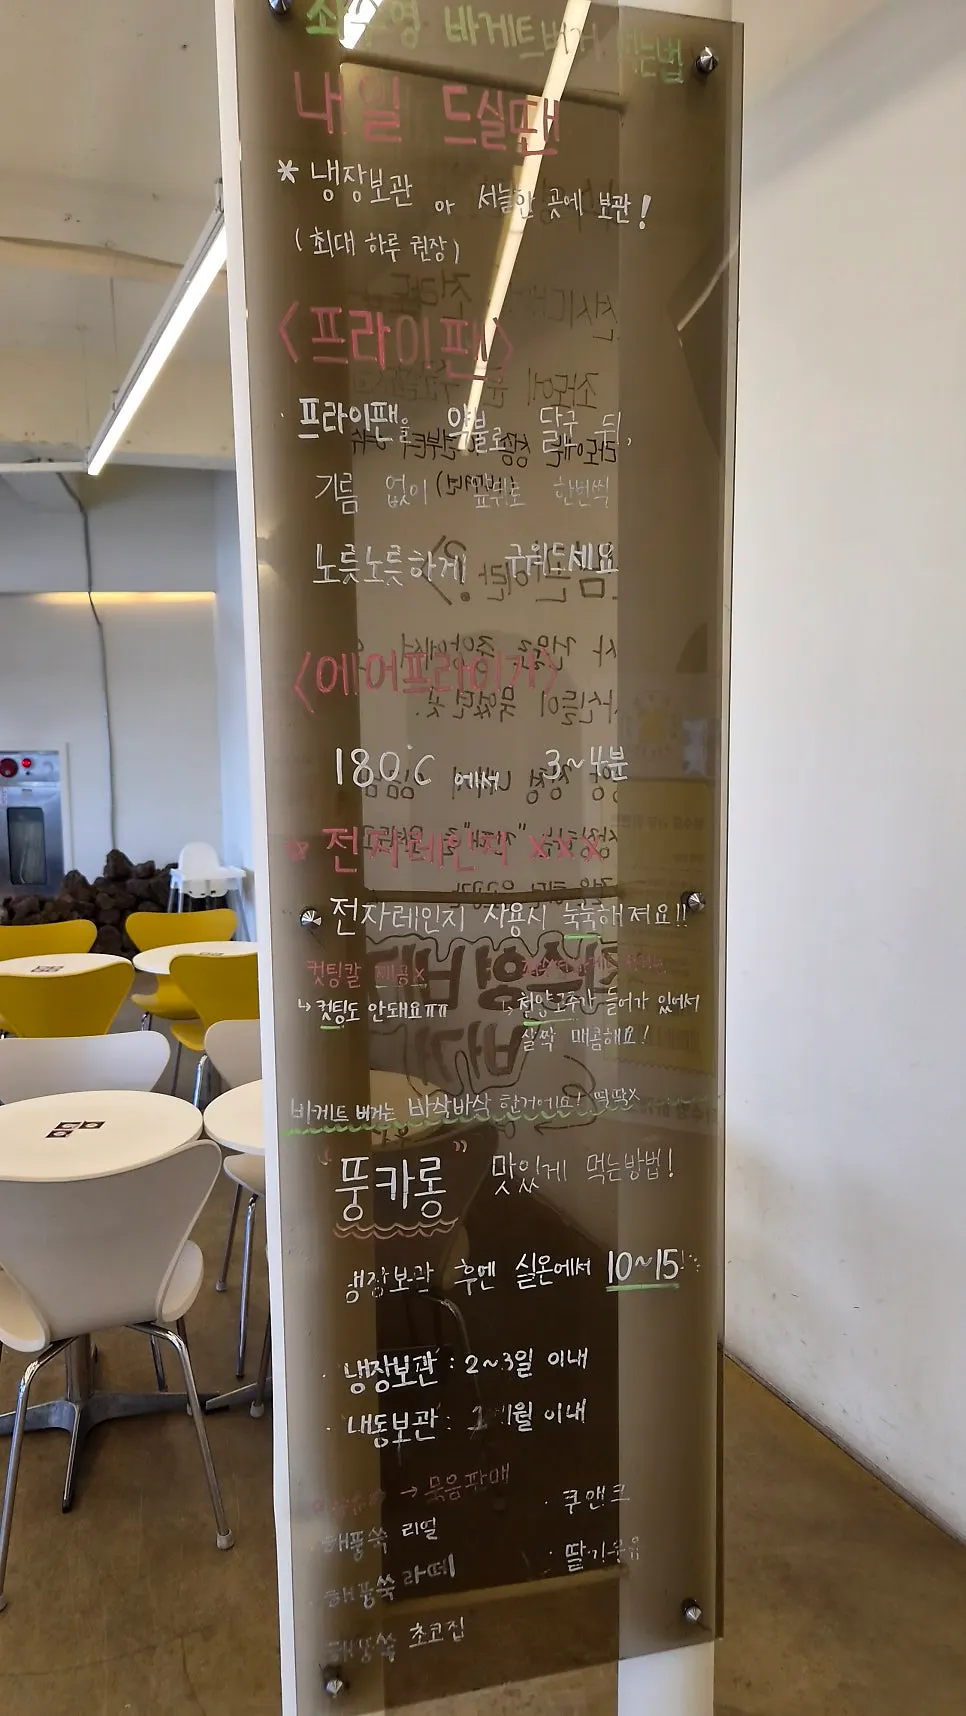 바게트버거 먹는법
내일 드실땐
* 냉장보관 or 서늘한 곳에 보관!
(최대 하루 권장)
<프라이팬>
· 프라이팬을 약불로 달군 뒤,
기름 없이 앞뒤로 한번씩
노릇노릇하게 구워드세요
<에어프라이기>
180°C 에서 3~4분
전자레인지 xxx
전자레인지 사용시 눅눅해져요!!
컷팅칼 제공x
↳ 컷팅도 안돼요ㅠㅠ
↳ 청양고추가 들어가 있어서
살짝 매콤해요!
바게트 버거는 바삭바삭 한거에요! 딱딱X
"뚱카롱" 맛있게 먹는방법!
냉장보관 후엔 실온에서 10~15
· 냉장보관 : 2~3일 이내
· 냉동보관 : 1월 이내
→ 묶음판매
해풍쑥 리얼
해풍쑥 라떼
해풍쑥 초코집
· 쿠앤크
· 딸기우유